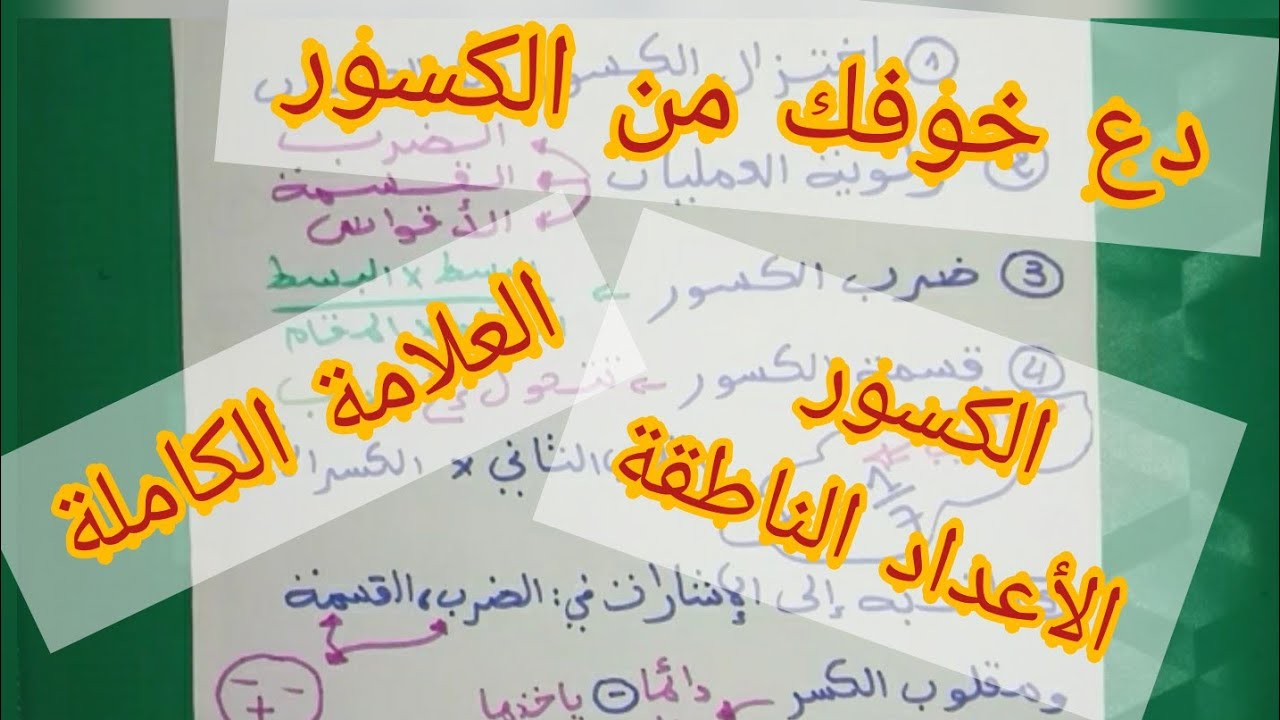 دع خوفك من الكسور
العلامة الكاملة
الكسور
الأعداد الناطقة
① اختزال الكسور
② أولوية العمليات
الضرب
القسمة
الأقواس
③ ضرب الكسور ← البسط × البسط
المقام
④ قسمة الكسور ← تتحول
الثاني × الكسر
إلى الإشارات في: الضرب، القسمة
ومقلوب الكسر ← دائما - ياخذها
- -
+